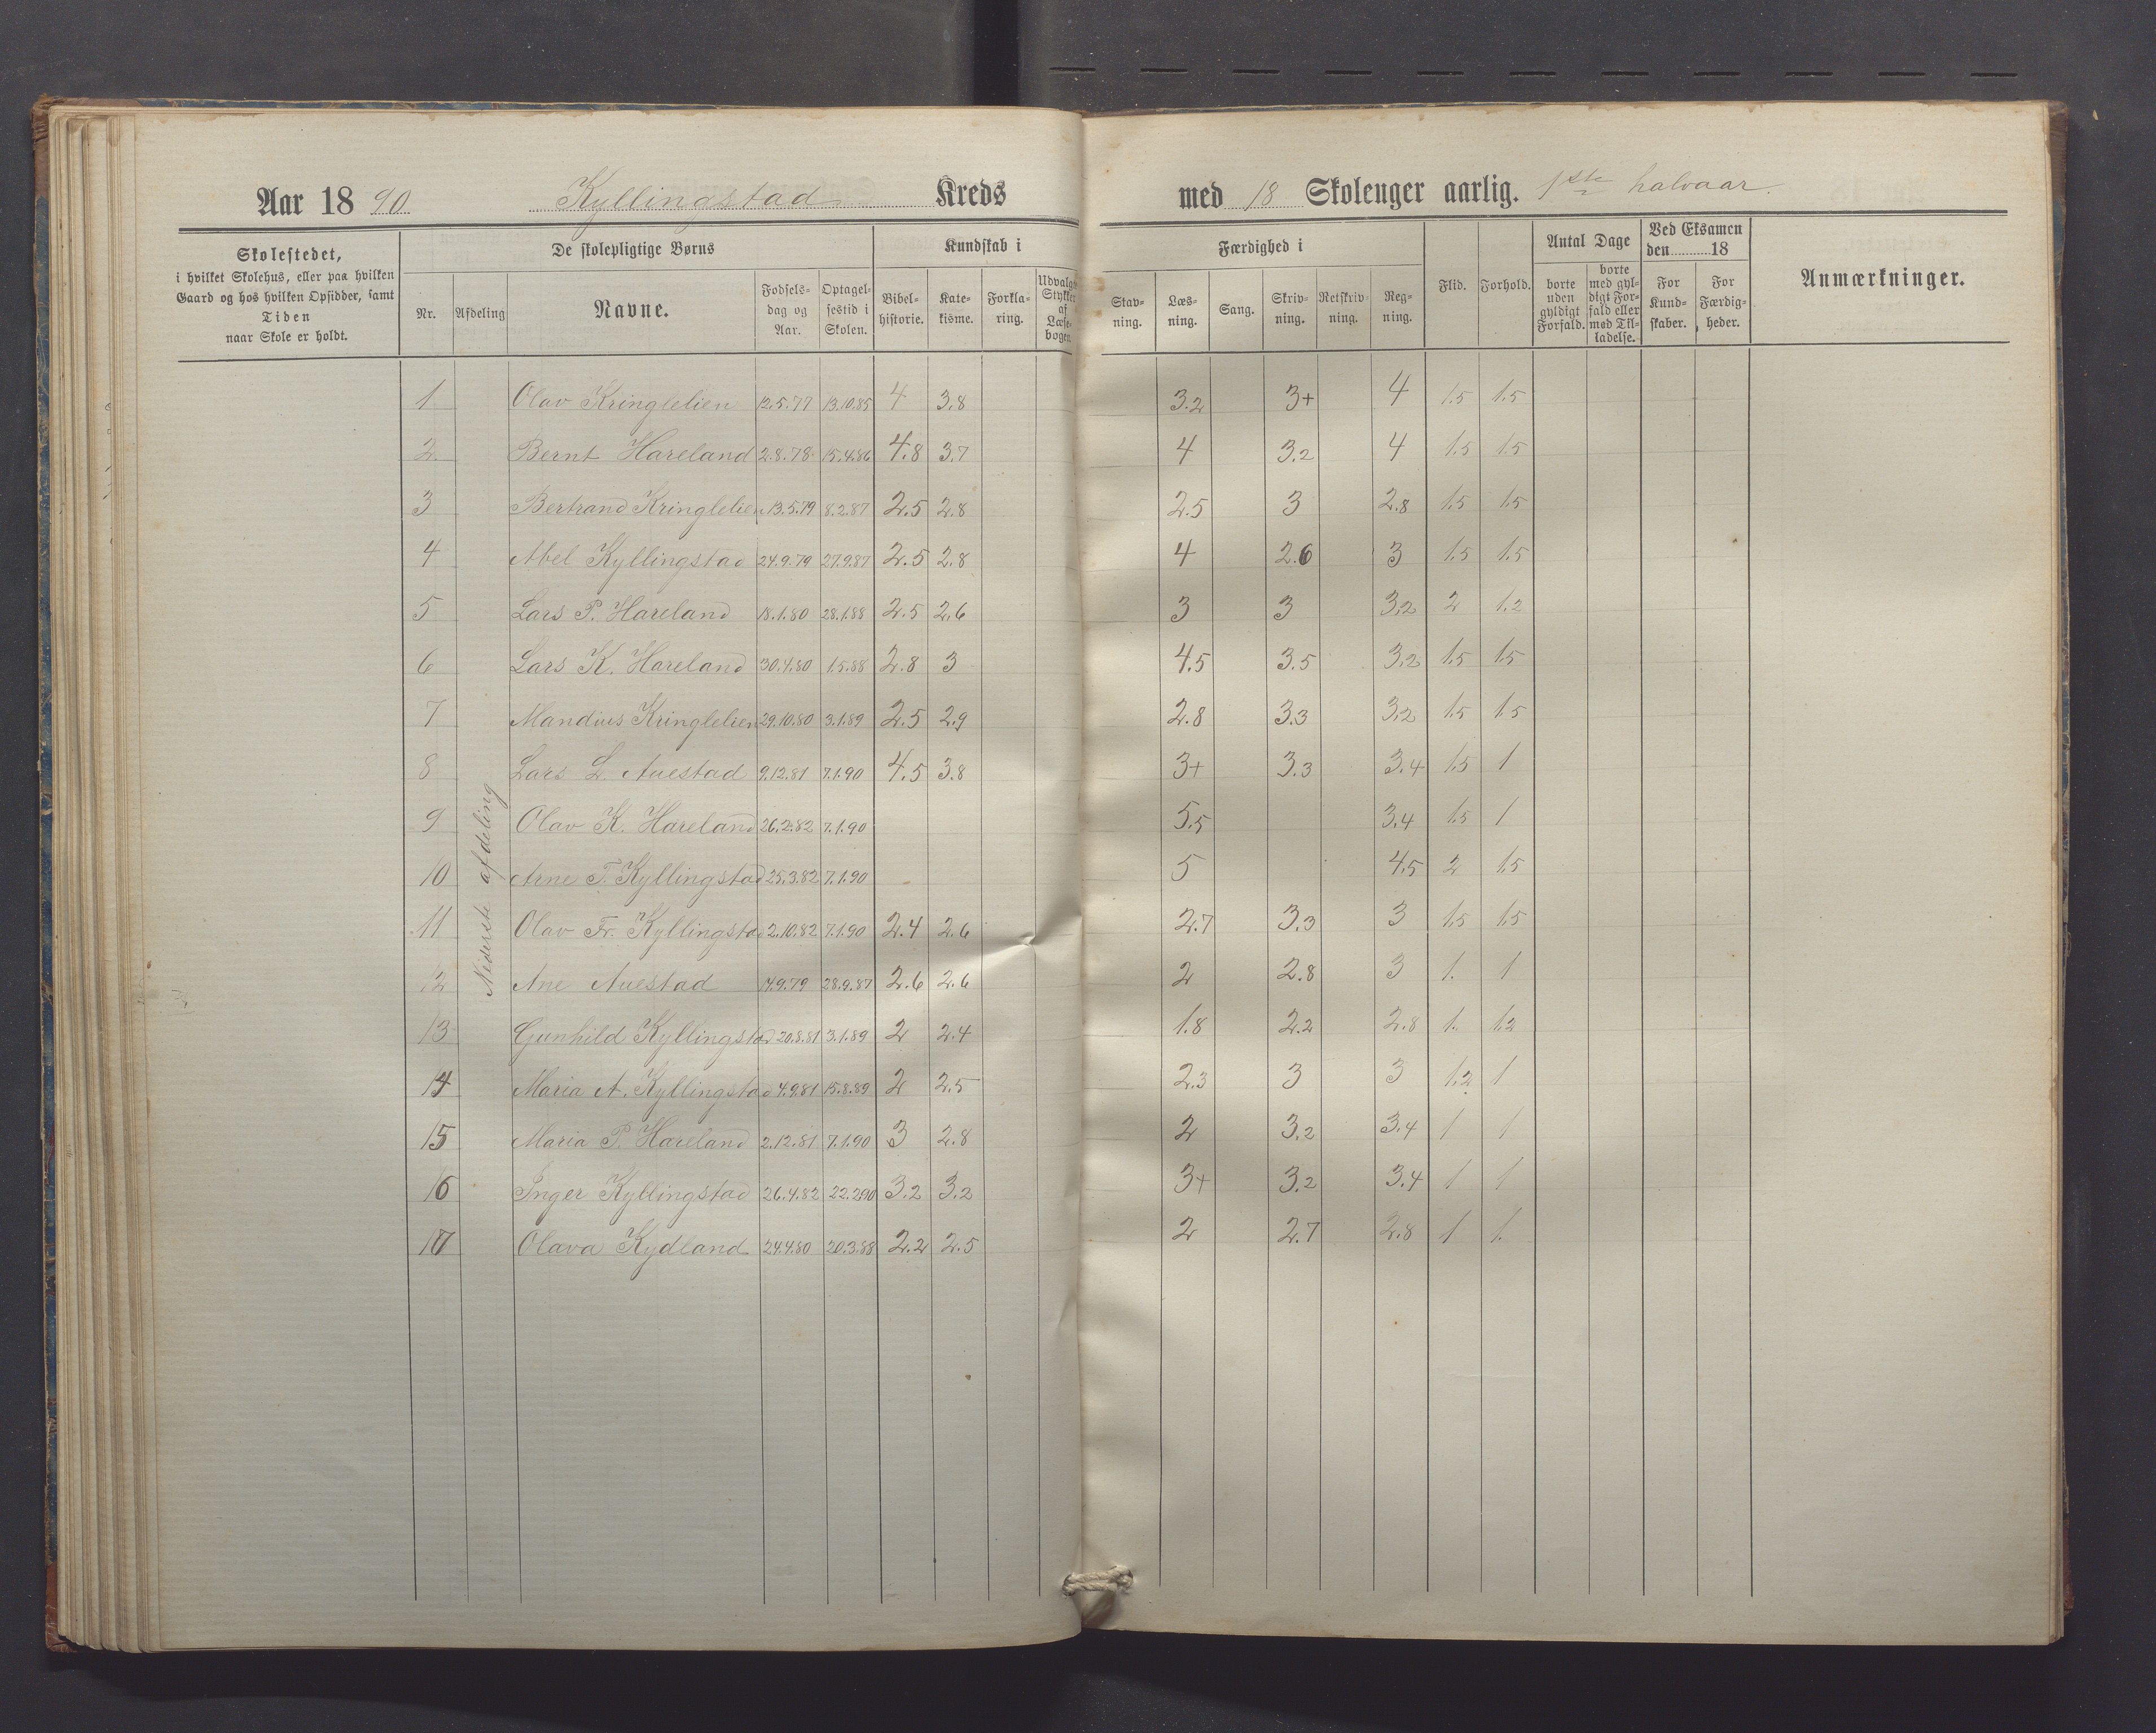 Aar 1890 Kyllingstad Kreds med 18 Skoleuger aarlig. 1ste halvaar.
Skolestedet,
i hvilket Skolehus, eller paa hvilken
Gaard og hos hvilken Opsidder, samt
Tiden
naar Skole er holdt.
De skolepligtige Børns
Nr. Afdeling Navne. Fødsels-dag og Aar. Optagel-sestid i Skolen.
Kundskab i
Bibel-historie. Kate-kisme. Forkla-ring. Udvalgte Stykker af Læse-bogen.
Færdighed i
Stav-ning. Læs-ning. Sang. Skriv-ning. Retskriv-ning. Reg-ning.
Flid. Forhold.
Antal Dage
borte uden gyldigt Forfald. borte med gyl-digt For-fald eller med Til-ladelse.
Ved Eksamen den 18
For Kund-skaber. For Færdig-heder.
Anmærkninger.
Nederste afdeling
1 Olav Kringlelien 12.5.77 13.10.85 4 3.8 3.2 3+ 4 1.5 1.5
2 Bernt Hareland 2.8.78 15.4.86 4.8 3.7 4 3.2 4 1.5 1.5
3 Bertrand Kringlelien 13.5.79 8.2.87 2.5 2.8 2.5 3 2.8 1.5 1.5
4 Abel Kyllingstad 24.9.79 27.9.87 2.5 2.8 4 2.6 3 1.5 1.5
5 Lars P. Hareland 18.1.80 28.1.88 2.5 2.6 3 3 3.2 2 1.2
6 Lars K. Hareland 30.4.80 1.5.88 2.8 3 4.5 3.5 3.2 1.5 1.5
7 Mandius Kringlelien 29.10.80 3.1.89 2.5 2.9 2.8 3.3 3.2 1.5 1.5
8 Lars L. Auestad 9.12.81 7.1.90 4.5 3.8 3+ 3.3 3.4 1.5 1
9 Olav K. Hareland 26.2.82 7.1.90 5.5 3.4 1.5 1
10 Arne T. Kyllingstad 25.3.82 7.1.90 5 4.5 2 1.5
11 Olav Fr. Kyllingstad 2.10.82 7.1.90 2.4 2.6 2.7 3.3 3 1.5 1.5
12 Ane Auestad 14.9.79 28.9.87 2.6 2.6 2 2.8 3 1. 1
13 Gunhild Kyllingstad 20.8.81 3.1.89 2 2.4 1.8 2.2 2.8 1. 1.2
14 Maria A. Kyllingstad 4.9.81 15.8.89 2 2.5 2.3 3 3 1.2 1
15 Maria P. Hareland 2.12.81 7.1.90 3 2.8 2 3.2 3.4 1 1
16 Inger Kyllingstad 26.4.82 22.2.90 3.2 3.2 3+ 3.2 3.4 1 1
17 Olava Kydland 24.4.80 20.3.88 2.2 2.5 2 2.7 2.8 1 1.